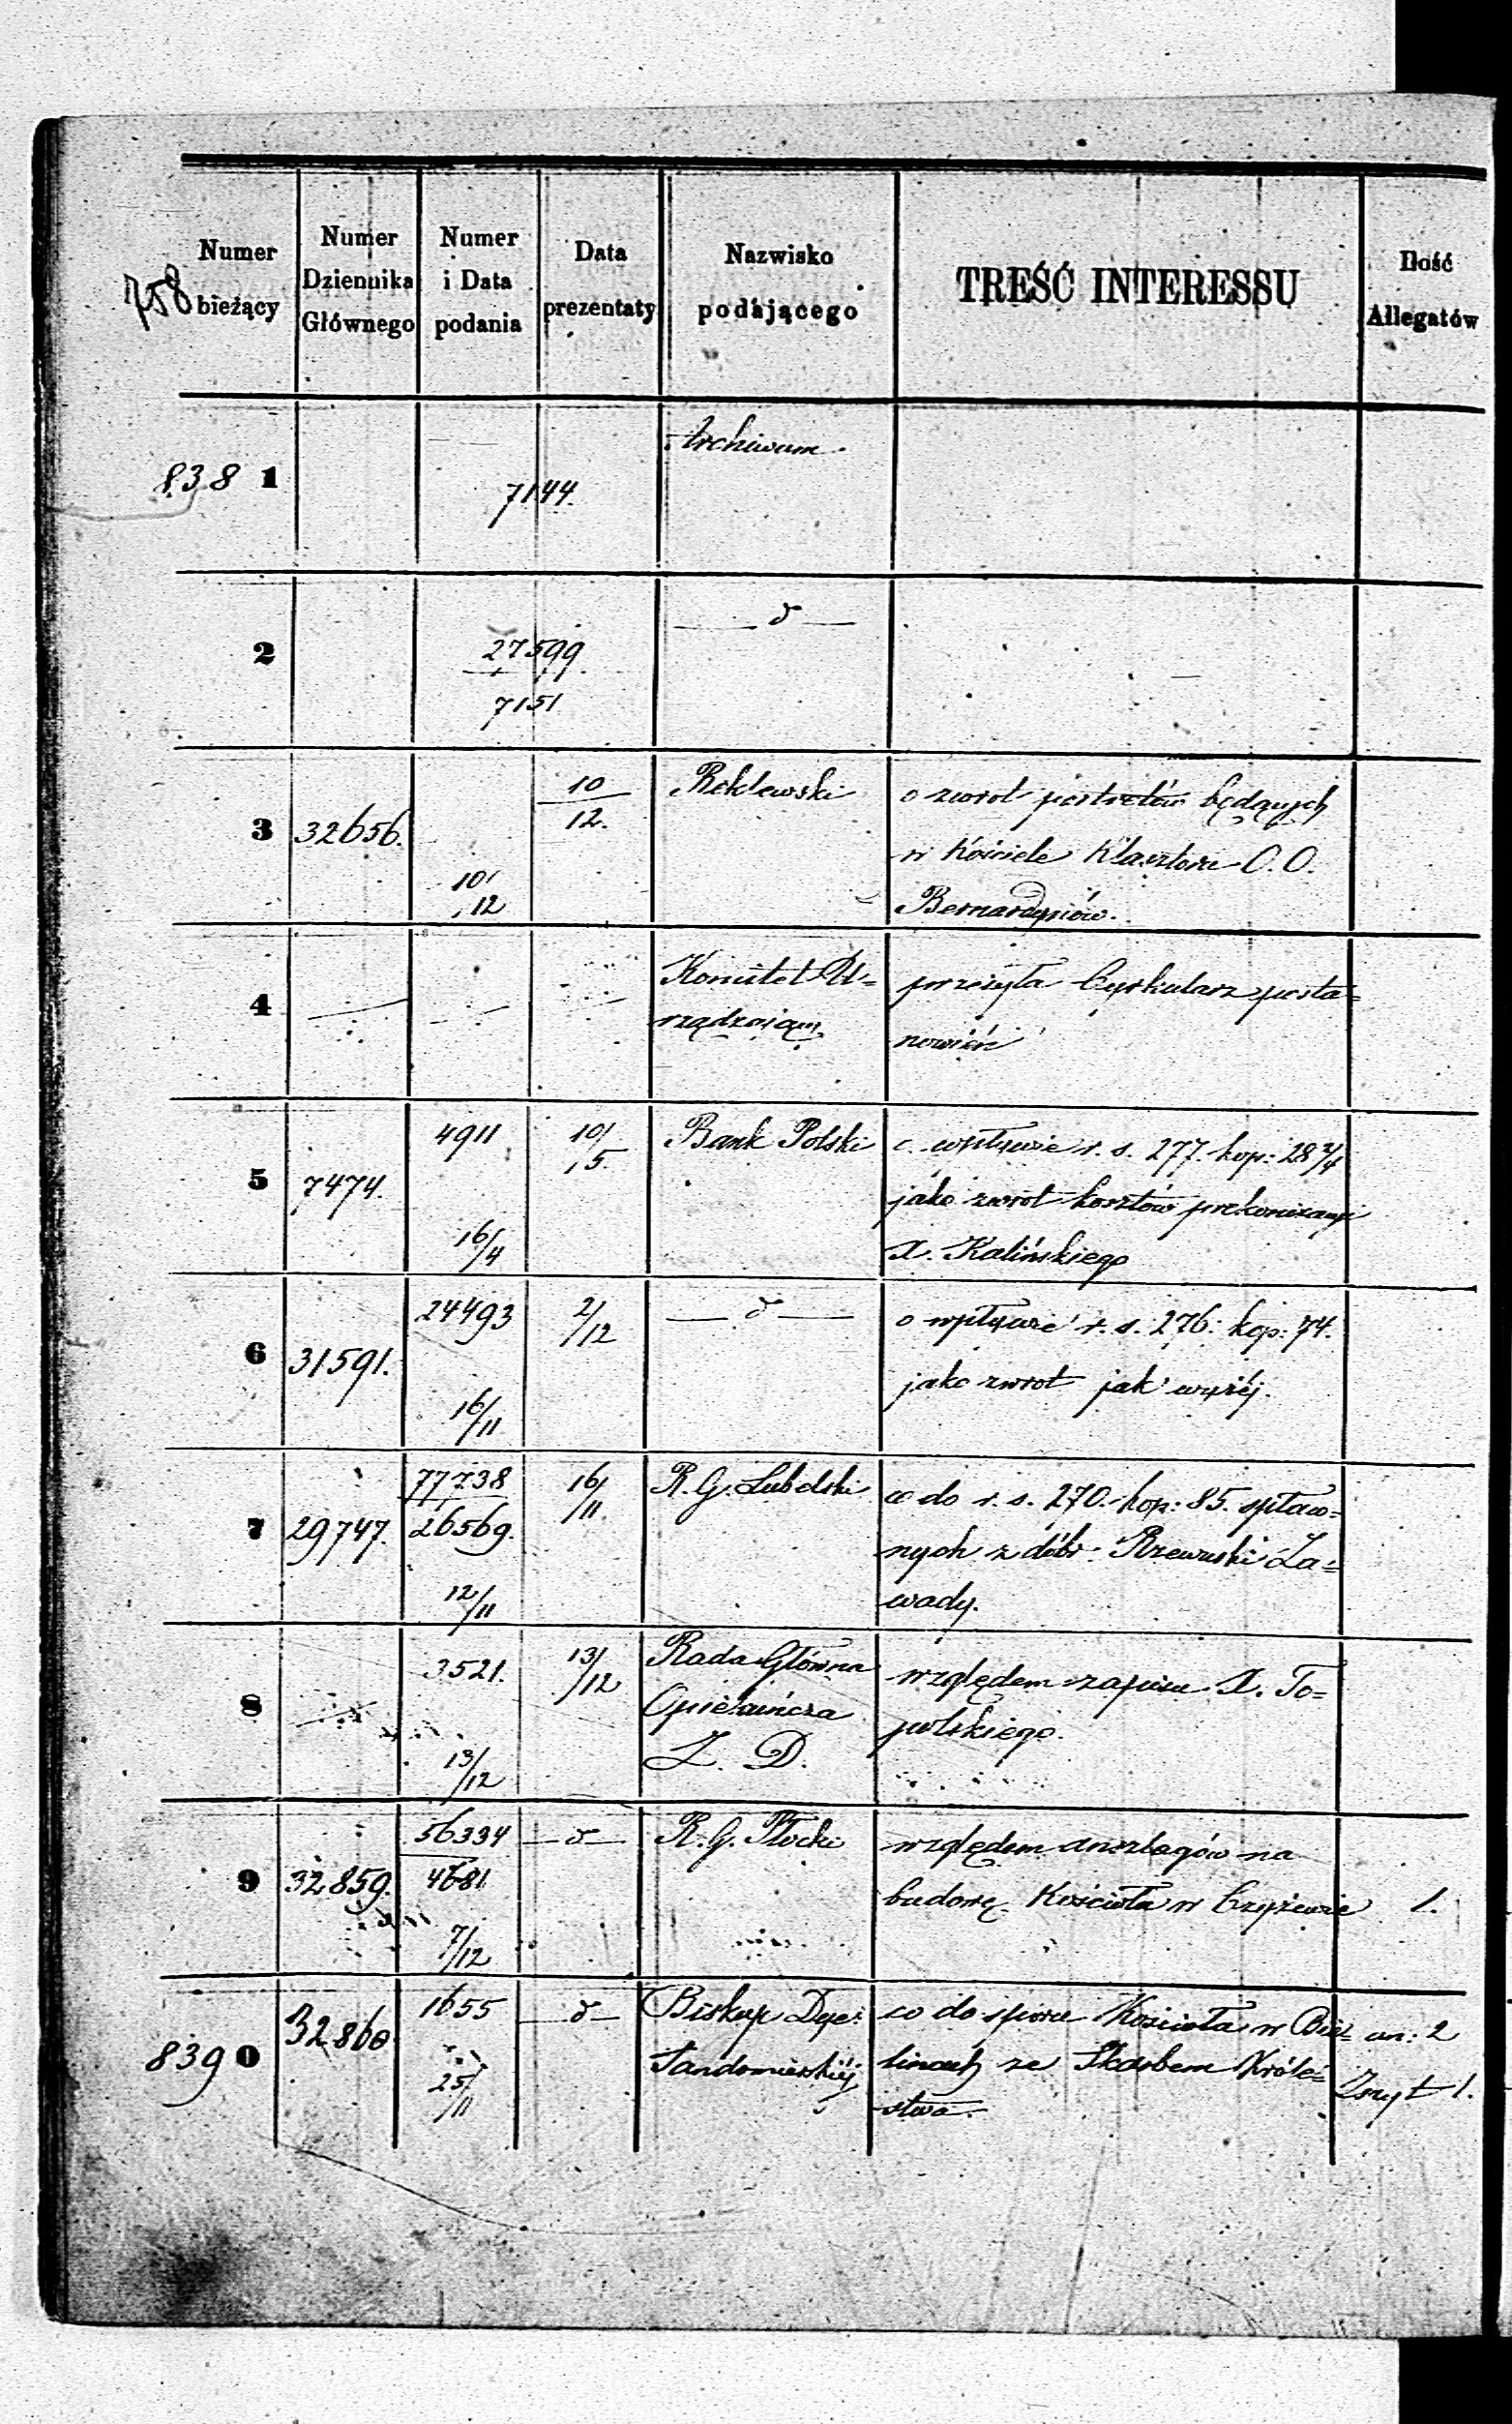 758
Numer bieżący
Numer Dziennika Głównego
Numer i Data podania
Data prezentaty
Nazwisko podającego
TREŚĆ INTERESSU
Ilość Allegatów
838 1
7144.
Archiwum.
2
27599
7151
— d —
3
32656.
10/12
10/12.
Reklewski
o zwrot portretów będących
w Kościele Klasztoru O.O.
Bernardynów.
4
Komitet U=
rządzając.
przesyła Cyrkularz posta=
nowień
5
7474.
4911
16/4
10/5.
Bank Polski
o wpływie r. s. 277. kop: 28 2/4
jako zwrot kosztów prekonizacyi
X. Kalińskiego
6
31591.
24493
16/11
2/12
— d —
o wpływie r. s. 276: kop: 74.
jako zwrot jak wyżéj.
7
29747.
77738
26569.
12/11
16/11
R. G. Lubelski
co do r. s. 270. kop: 85. spław=
nych z dóbr: Rzewuski Za=
wady.
8
3521.
13/12
13/12
Rada Główna
Opiekuńcza
Z. D.
względem zapisu X. To=
polskiego.
9
32859.
56334
4681
7/12
— d —
R. G. Płocki
względem anszlagów na
budowę Kościoła w Czyżewie
1.
839 0
32860
1655
25/11
— d —
Biskup Dyec:
Sandomierskiéj
co do sporu Kościoła w Bie=
linach ze Skarbem Króle=
stwa.
an: 2
Zszyt 1.